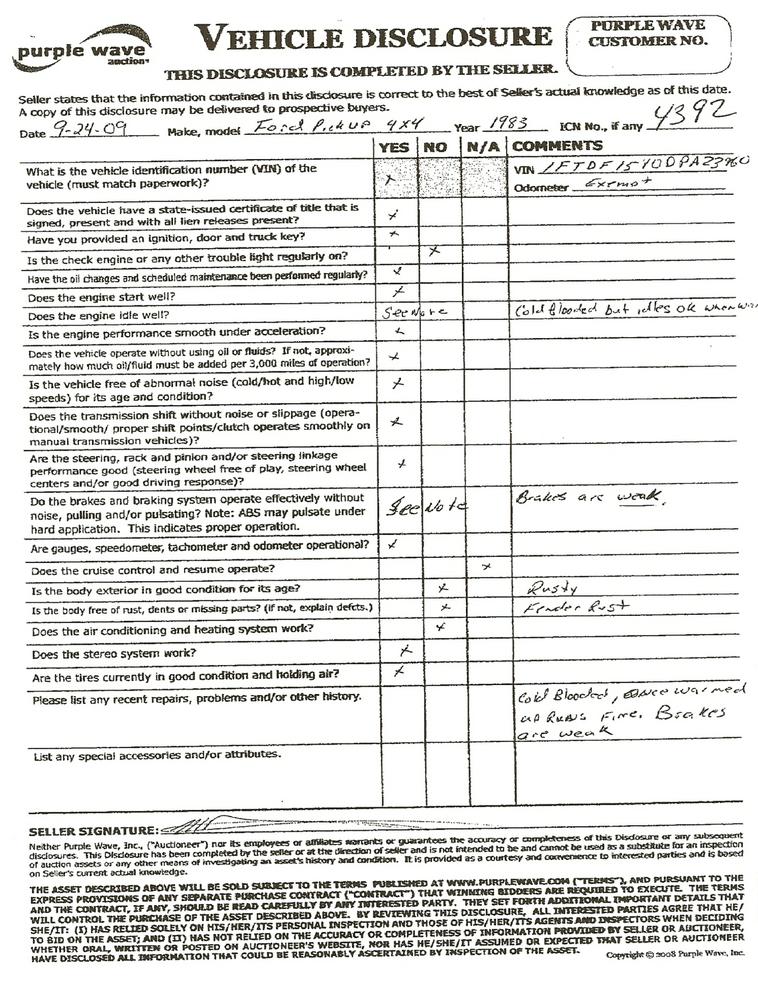 purple wave
auction
VEHICLE DISCLOSURE
PURPLE WAVE
CUSTOMER NO.
THIS DISCLOSURE IS COMPLETED BY THE SELLER.
Seller states that the information contained in this disclosure is correct to the best of Seller's actual knowledge as of this date.
A copy of this disclosure may be delivered to prospective buyers.
Date 9-24-09 Make, model Ford Pickup 4x4 Year 1983 ICN No., if any 4392
YES NO N/A COMMENTS
What is the vehicle identification number (VIN) of the VIN 1FTDF15Y0DPA23960
vehicle (must match paperwork)? x Odometer Exempt
Does the vehicle have a state-issued certificate of title that is
signed, present and with all lien releases present? x
Have you provided an ignition, door and truck key? x
Is the check engine or any other trouble light regularly on? x
Have the oil changes and scheduled maintenance been performed regularly? x
Does the engine start well? x
Does the engine idle well? See Note Cold Blooded but idles ok when
Is the engine performance smooth under acceleration? x
Does the vehicle operate without using oil or fluids? If not, approxi-
mately how much oil/fluid must be added per 3,000 miles of operation? x
Is the vehicle free of abnormal noise (cold/hot and high/low
speeds) for its age and condition? x
Does the transmission shift without noise or slippage (opera-
tional/smooth/ proper shift points/clutch operates smoothly on
manual transmission vehicles)? x
Are the steering, rack and pinion and/or steering linkage
performance good (steering wheel free of play, steering wheel
centers and/or good driving response)? x
Do the brakes and braking system operate effectively without Brakes are weak.
noise, pulling and/or pulsating? Note: ABS may pulsate under See Note
hard application. This indicates proper operation.
Are gauges, speedometer, tachometer and odometer operational? x
Does the cruise control and resume operate? x
Is the body exterior in good condition for its age? x Rusty
Is the body free of rust, dents or missing parts? (if not, explain defcts.) x Fender Rust
Does the air conditioning and heating system work? x
Does the stereo system work? x
Are the tires currently in good condition and holding air? x
Please list any recent repairs, problems and/or other history. Cold Blooded, once warmed
up Runs Fine. Brakes
are weak
List any special accessories and/or attributes.
SELLER SIGNATURE:
Neither Purple Wave, Inc., ("Auctioneer") nor its employees or affiliates warrants or guarantees the accuracy or completeness of this Disclosure or any subsequent
disclosures. This Disclosure has been completed by the seller or at the direction of seller and is not intended to be and cannot be used as a substitute for an inspection
of auction assets or any other means of investigating an asset's history and condition. It is provided as a courtesy and convenience to interested parties and is based
on Seller's current actual knowledge.
THE ASSET DESCRIBED ABOVE WILL BE SOLD SUBJECT TO THE TERMS PUBLISHED AT WWW.PURPLEWAVE.COM ("TERMS"), AND PURSUANT TO THE
EXPRESS PROVISIONS OF ANY SEPARATE PURCHASE CONTRACT ("CONTRACT") THAT WINNING BIDDERS ARE REQUIRED TO EXECUTE. THE TERMS
AND THE CONTRACT, IF ANY, SHOULD BE READ CAREFULLY BY ANY INTERESTED PARTY. THEY SET FORTH ADDITIONAL IMPORTANT DETAILS THAT
WILL CONTROL THE PURCHASE OF THE ASSET DESCRIBED ABOVE. BY REVIEWING THIS DISCLOSURE, ALL INTERESTED PARTIES AGREE THAT HE/
SHE/IT: (I) HAS RELIED SOLELY ON HIS/HER/ITS PERSONAL INSPECTION AND THOSE OF HIS/HER/ITS AGENTS AND INSPECTORS WHEN DECIDING
TO BID ON THE ASSET; AND (II) HAS NOT RELIED ON THE ACCURACY OR COMPLETENESS OF INFORMATION PROVIDED BY SELLER OR AUCTIONEER,
WHETHER ORAL, WRITTEN OR POSTED ON AUCTIONEER'S WEBSITE, NOR HAS HE/SHE/IT ASSUMED OR EXPECTED THAT SELLER OR AUCTIONEER
HAVE DISCLOSED ALL INFORMATION THAT COULD BE REASONABLY ASCERTAINED BY INSPECTION OF THE ASSET. Copyright © 2008 Purple Wave, Inc.